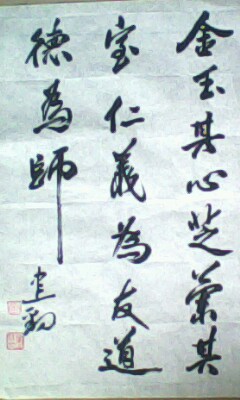 金玉其心芝蘭其
室仁義為友道
德為師